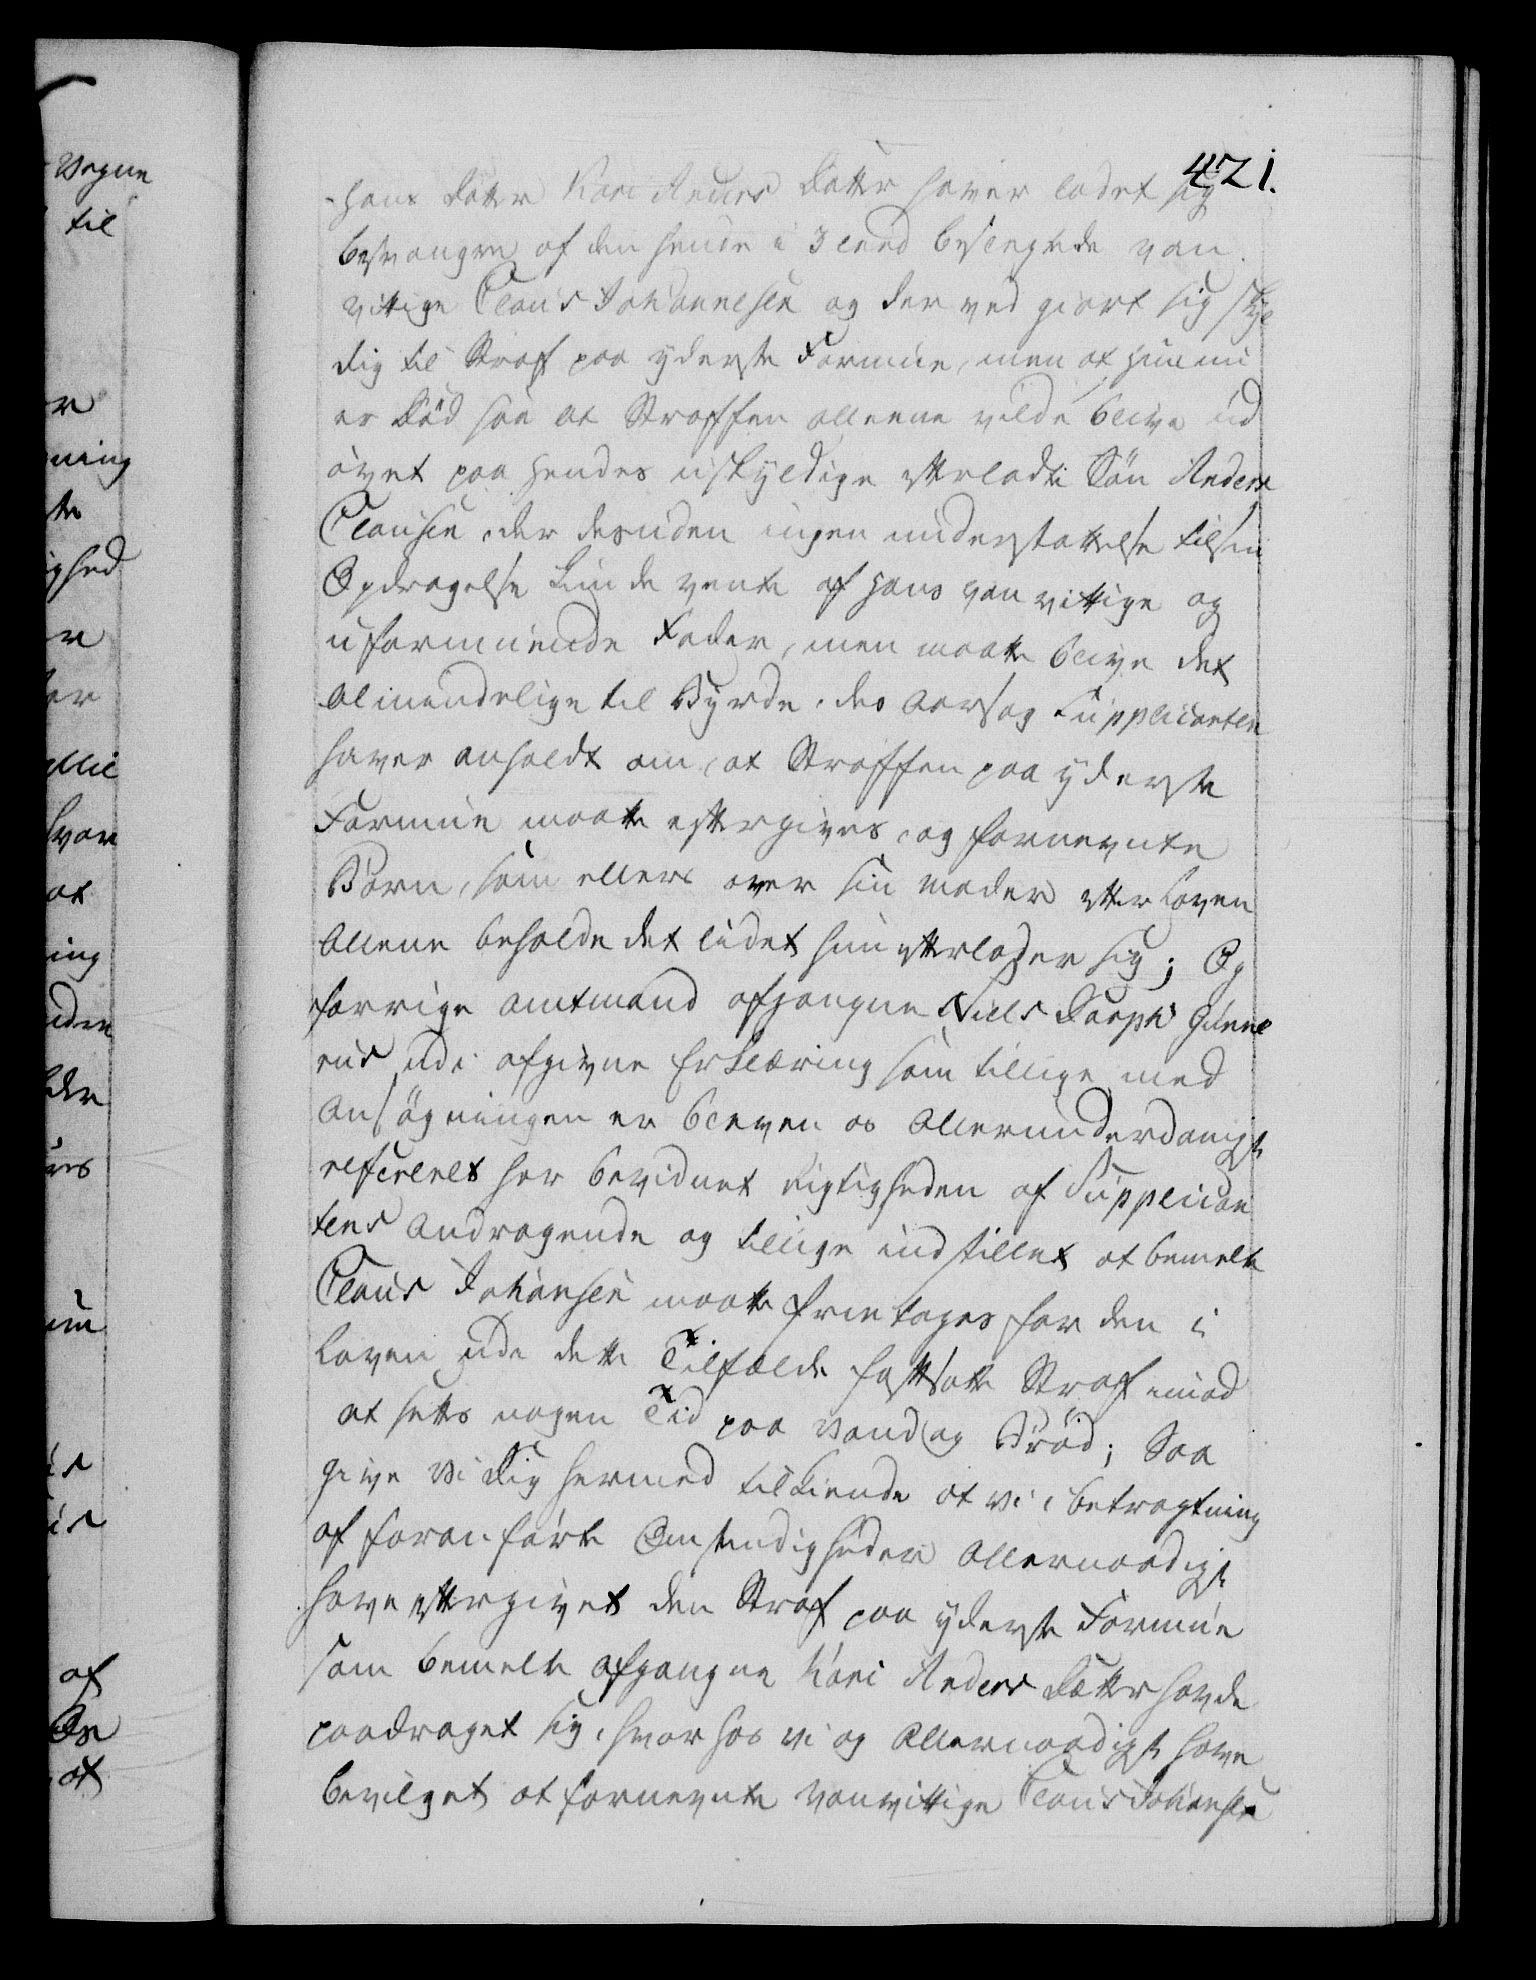 421.
hans Datter Kari Anders Datter haver ladet sig
besvangre af den hende i 3 leed beslegtede van
vittige Claus Johannesen og derved giort sig skyl
dig til Straf paa yderste Formue, men at hun nu
er Död saa at Straffen alleene vilde blive ud
övet paa hendes uskyldige efterladte Sön Anders
Clausen, der desuden ingen understøttelse til sin
Opdragelse kunde vente af hans vanvittige og
uformuende Fader, men maatte blive det
almindelige til Byrde, des aarsag Supplicanten
haver anholdt om, at Straffen paa yderste
Formue maatte eftergives, og fornevnte
Barn, som ellers arver sin moder efter Loven
allene beholde det lidet hun efterlader sig; Og
forrige amtmand afgangne Niels Dorph Gunne
rus udi afgivne Erklæring som tillige med
ansögningen er bleven os allerunderdanigst
refereret har bevidnet rigtigheden af Supplican
tens Andragende og tillige indstillet at bemelte
Claus Johansen maatte frietages for den i
Loven udi dette Tilfælde fastsatte Straf imod
at settes nogen Tid paa Vand og Bröd; Saa
give Vi Dig hermed tilkiende at vi i betragtning
af foranförte Omstendigheder Allernaadigst
have eftergivet den Straf paa yderste Formue
som bemelte afgangne Kari Anders Datter havde
paadraget sig, hvorhos vi og Allernaadigst have
bevilget at fornevnte vanvittige Claus Johansen